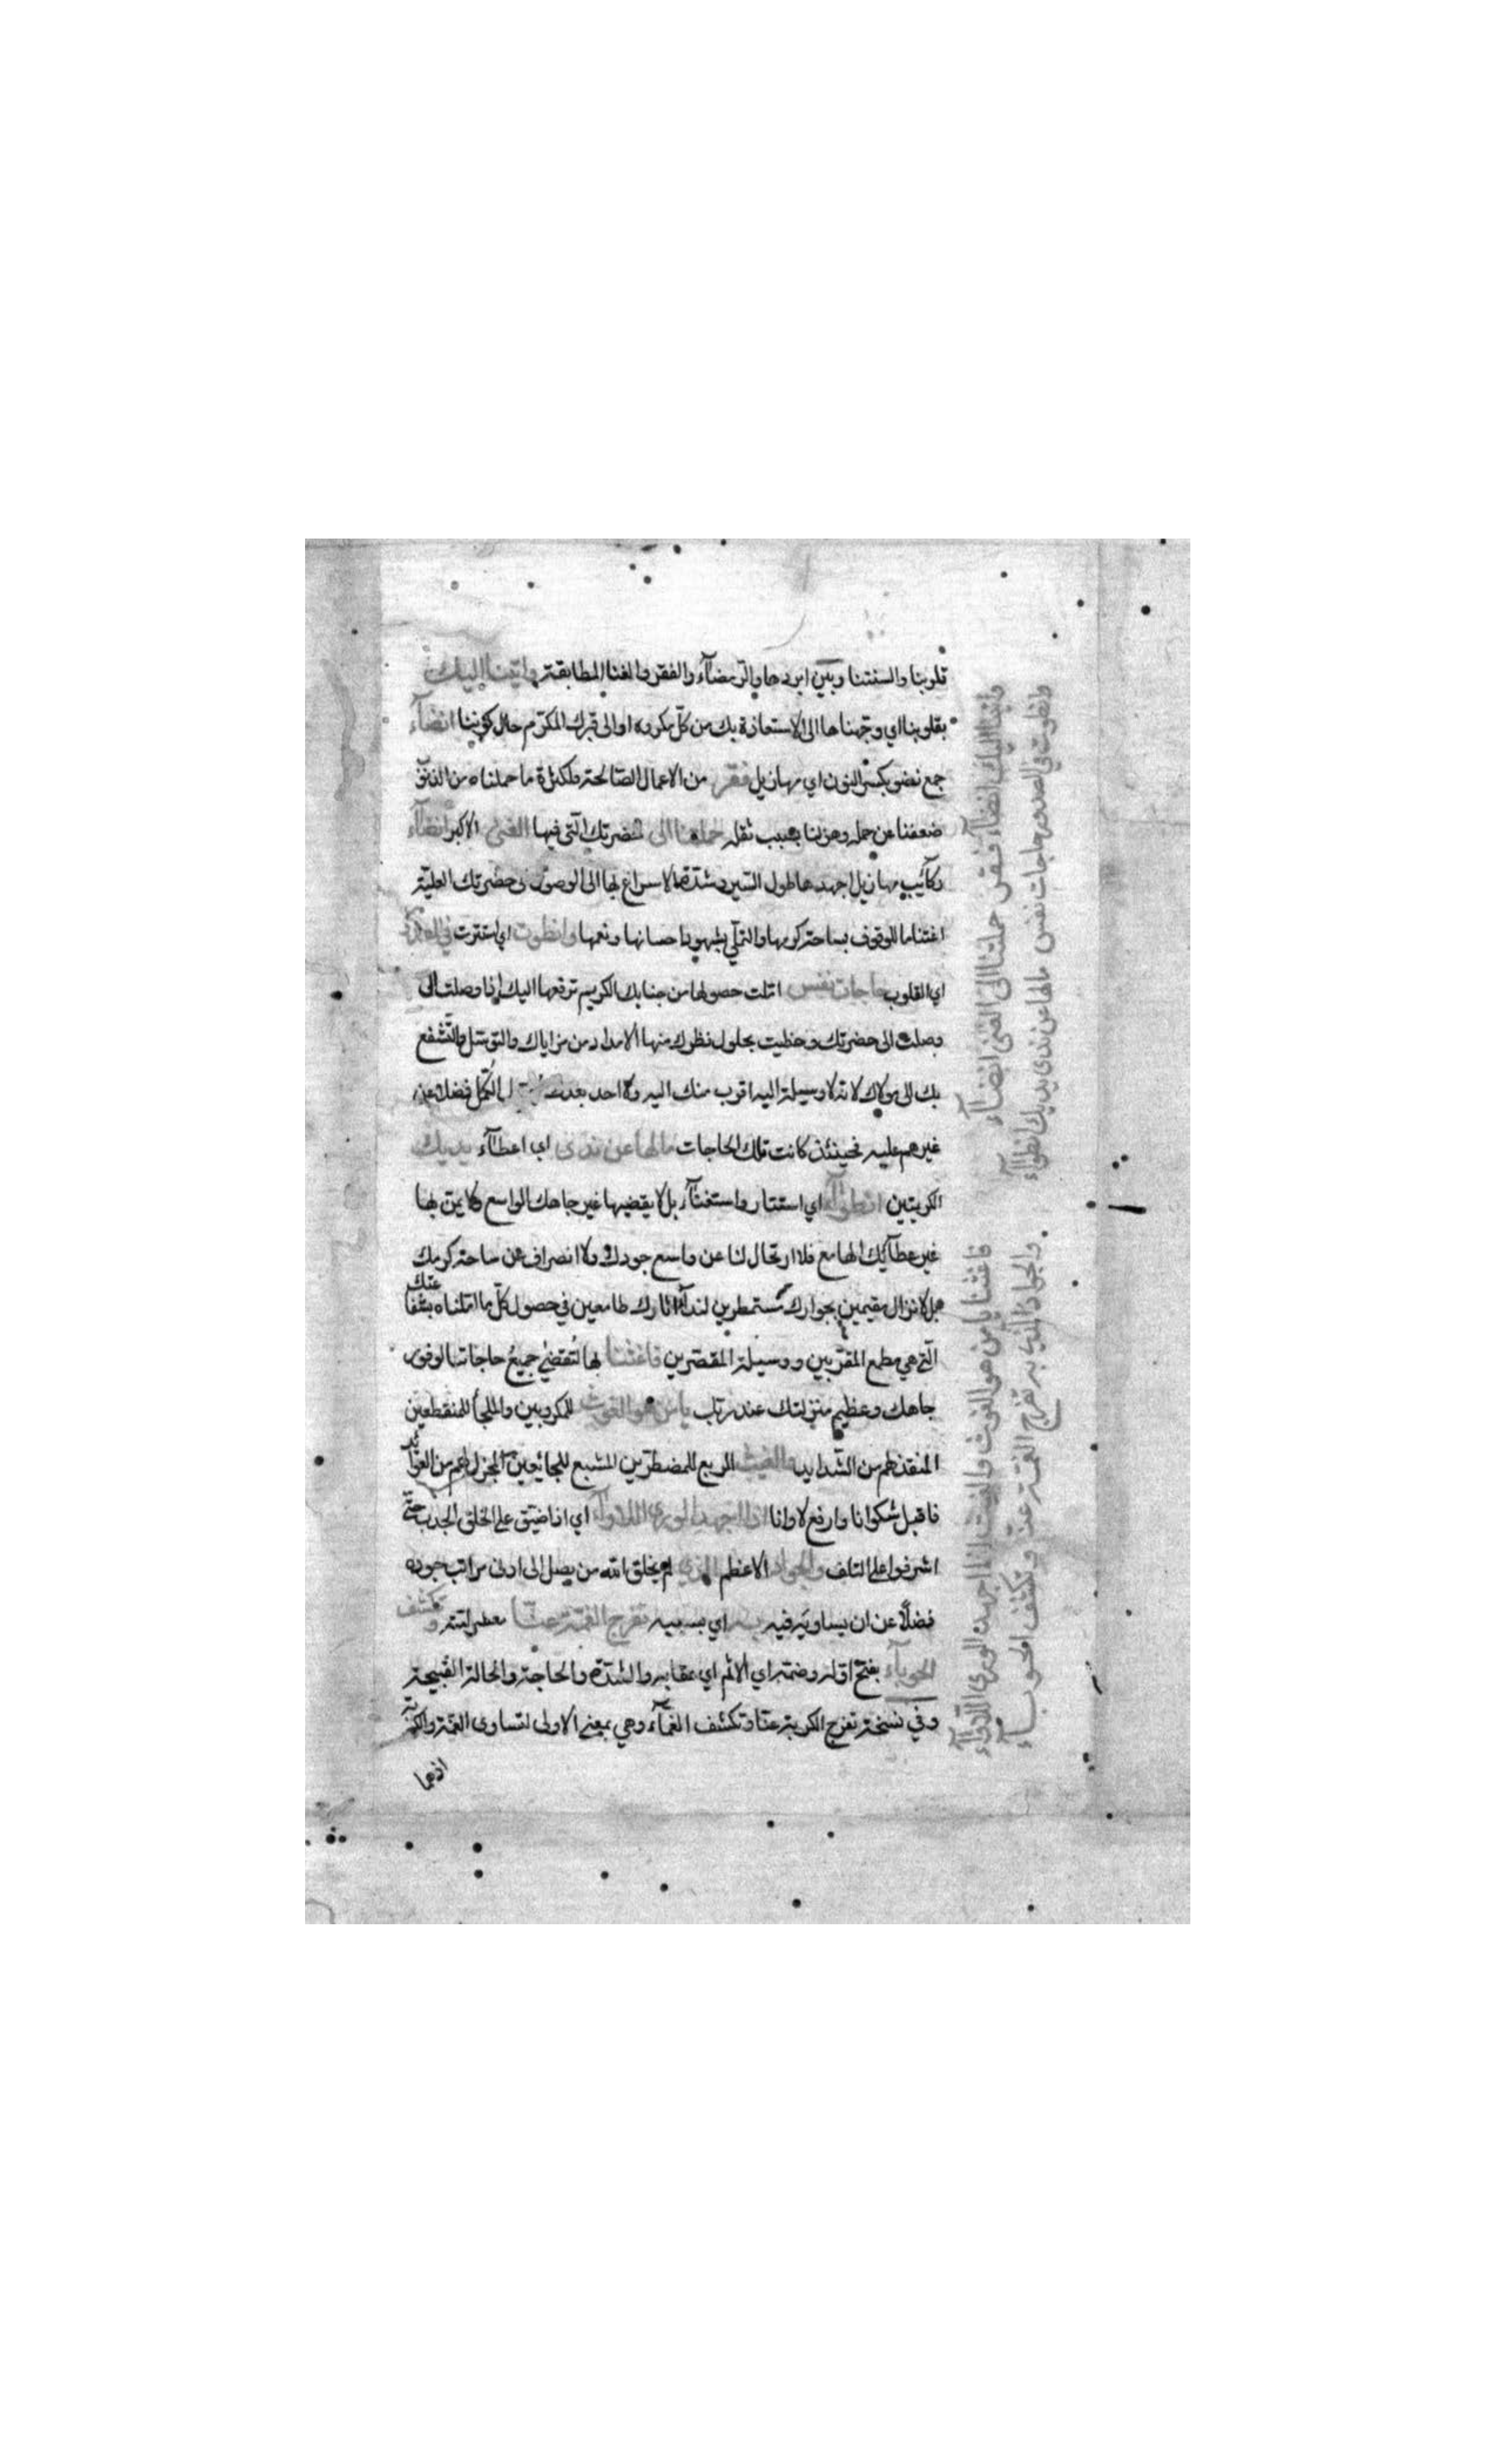 قلوبنا والسنتنا وبين ابردها والرمضآء والفقر والغنا المطابقة واتينا اليك
بقلوبنا اي وجهناها الى الاستعاذة بك من كل مكروه او الى قبرك المكرم حال كوننا انضآء
جمع نضو بكسر النون اي مهازيل فقر من الاعمال الصالحة ولكثرة ما حملناه من الذنوب
ضعفنا عن حمله وهزلنا بسبب ثقله حملتنا الى حضرتك التي فيها الغنى الاكبر انضآء
ركآئب مهازيل اجهدها طول السير وشدة الاسراع بها الى الوصول الى حضرتك العلية
اغتناما للوقوف بساحة كرمها والتملي بشهود احسانها ونعمها وانطوت اي استترت في الصدور
اي القلوب حاجات نفس املت حصولها من جنابك الكريم ترفعها اليك اذا وصلت الى
وصلت الى حضرتك وحظيت بحلول نظرك منها الامداد من مزاياك والتوسل والتشفع
بك الى مولاك لانه لا وسيلة اليه اقرب منك اليه ولا احد بعدت الكمل فضلا عن
غيرهم عليه فحينئذ كانت تلك الحاجات مالها عن ندى اي اعطآء يديك
الكريمتين انطوآء اي استتار واستغنآء بل لا يقضيها غير جاهك الواسع ولا يمن بها
غير عطآئك الهامع فلا ارتحال لنا عن واسع جودك ولا انصراف عن ساحة كرمك
بل لا نزال مقيمين بجوارك مستمطرين لندآء اثارك طامعين في حصول كل ما املناه بشفاعتك
التي هي مطمع المقربين ووسيلة المقصرين فاغثنا بها لتقضي جميع حاجاتنا لوفور
جاهك وعظيم منزلتك عند ربك يا من هو الغوث للمكروبين والملجأ للمنقطعين
المنقذ لهم من الشدايد والغيث المربع للمضطرين المشبع للجائعين المجزل لهم من العوائد
فاقبل شكوانا وارفع لاوانا اذا اجهد الورى اللأوآء اي اذا ضيق على الخلق الجدب حتى
اشرفوا على التلف والجواد الاعظم الذي لم يخلق الله من يصل الى ادنى مراتب جوده
فضلًا عن ان يساويه فيه به اي بسببه تفرج الغمة عنا وتكشف
الحوبآء بفتح اوله وضمه اي الاثم اي عقابه والشدة والحاجة والحالة القبيحة
وفي نسخة تفرج الكربة عنا وتكشف الغمآء وهي بمعنى الاولى لتساوي الغمة والكربة
اذهما
واتينا اليك انضآء فقر حملتنا الى الغنى انضآء
وانطوت في الصدور حاجات نفس مالها عن ندى يديك انطوآء
فاغثنا يا من هو الغوث والغيث اذا اجهد الورى اللأوآء
والجواد الذي به تفرج الغمة عنا وتكشف الحوبآء